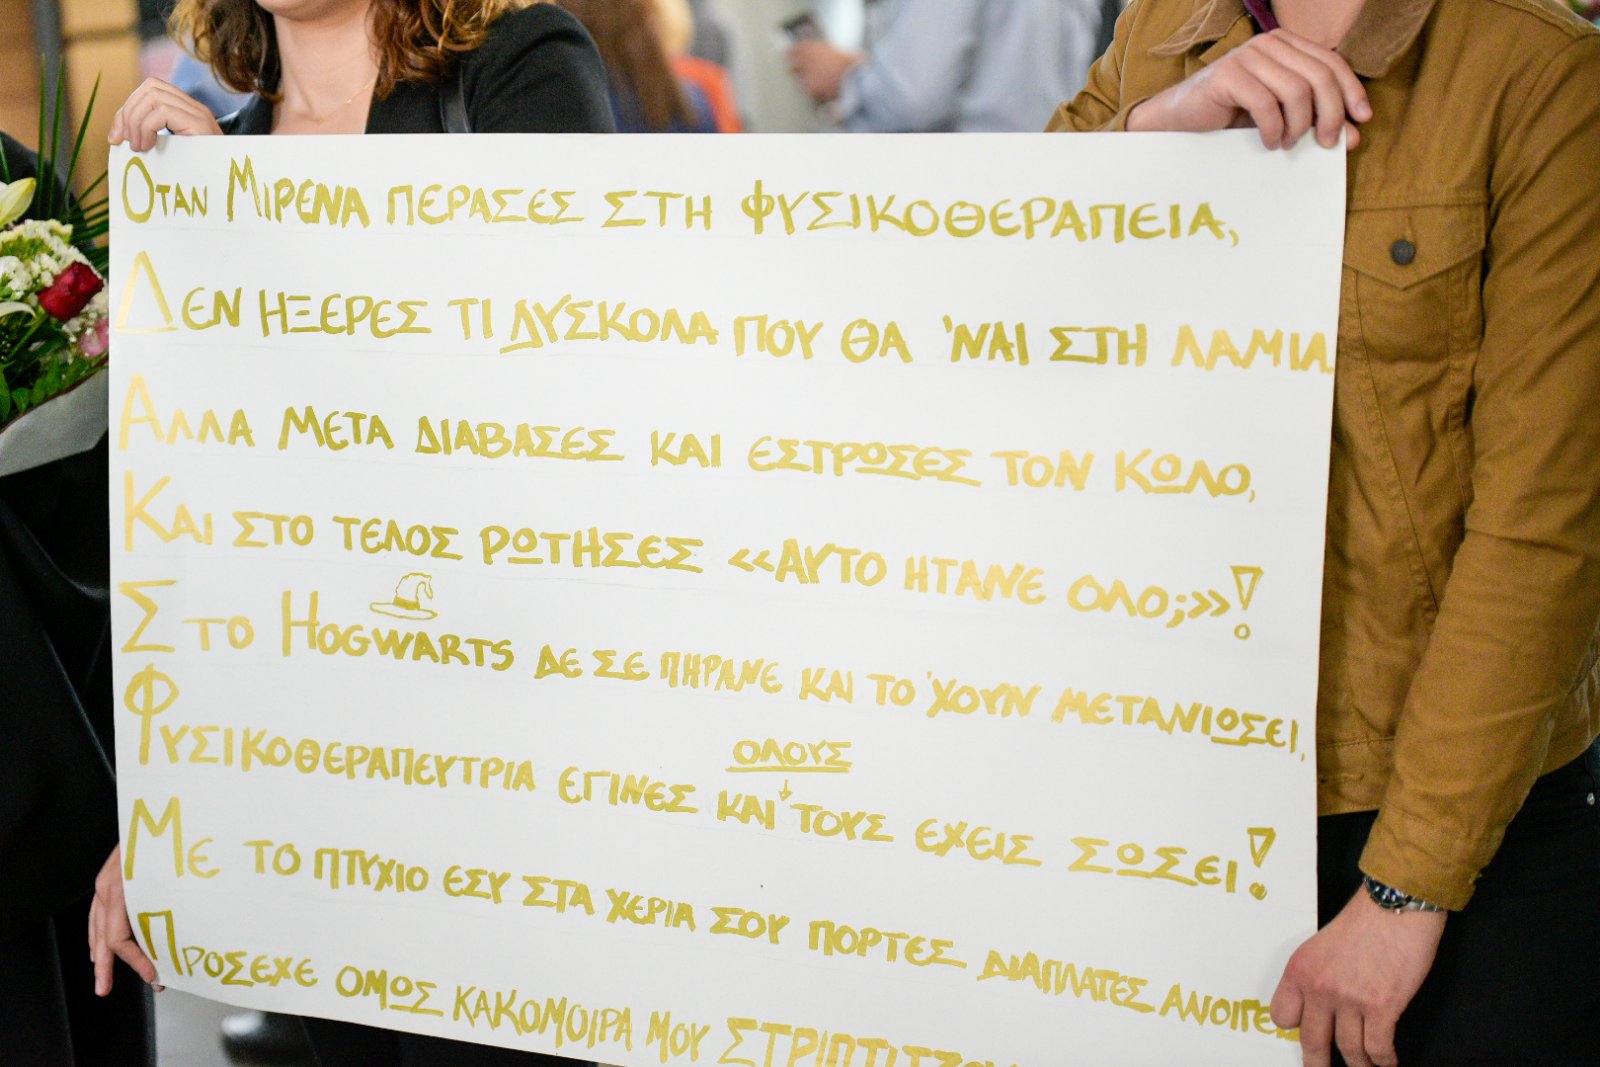 ΟΤΑΝ ΜΙΡΕΝΑ ΠΕΡΑΣΕΣ ΣΤΗ ΦΥΣΙΚΟΘΕΡΑΠΕΙΑ,
ΔΕΝ ΗΞΕΡΕΣ ΤΙ ΔΥΣΚΟΛΑ ΠΟΥ ΘΑ 'ΝΑΙ ΣΤΗ ΛΑΜΙΑ.
ΑΛΛΑ ΜΕΤΑ ΔΙΑΒΑΣΕΣ ΚΑΙ ΕΣΤΡΩΣΕΣ ΤΟΝ ΚΩΛΟ,
ΚΑΙ ΣΤΟ ΤΕΛΟΣ ΡΩΤΗΣΕΣ «ΑΥΤΟ ΗΤΑΝΕ ΟΛΟ;»!
ΣΤΟ HOGWARTS ΔΕ ΣΕ ΠΗΡΑΝΕ ΚΑΙ ΤΟ 'ΧΟΥΝ ΜΕΤΑΝΙΩΣΕΙ,
ΟΛΟΥΣ
ΦΥΣΙΚΟΘΕΡΑΠΕΥΤΡΙΑ ΕΓΙΝΕΣ ΚΑΙ ΤΟΥΣ ΕΧΕΙΣ ΣΩΣΕΙ!
ΜΕ ΤΟ ΠΤΥΧΙΟ ΕΣΥ ΣΤΑ ΧΕΡΙΑ ΣΟΥ ΠΟΡΤΕΣ ΔΙΑΠΛΑΤΕΣ
ΠΡΟΣΕΧΕ ΟΜΩΣ ΚΑΚΟΜΟΙΡΑ ΜΟΥ